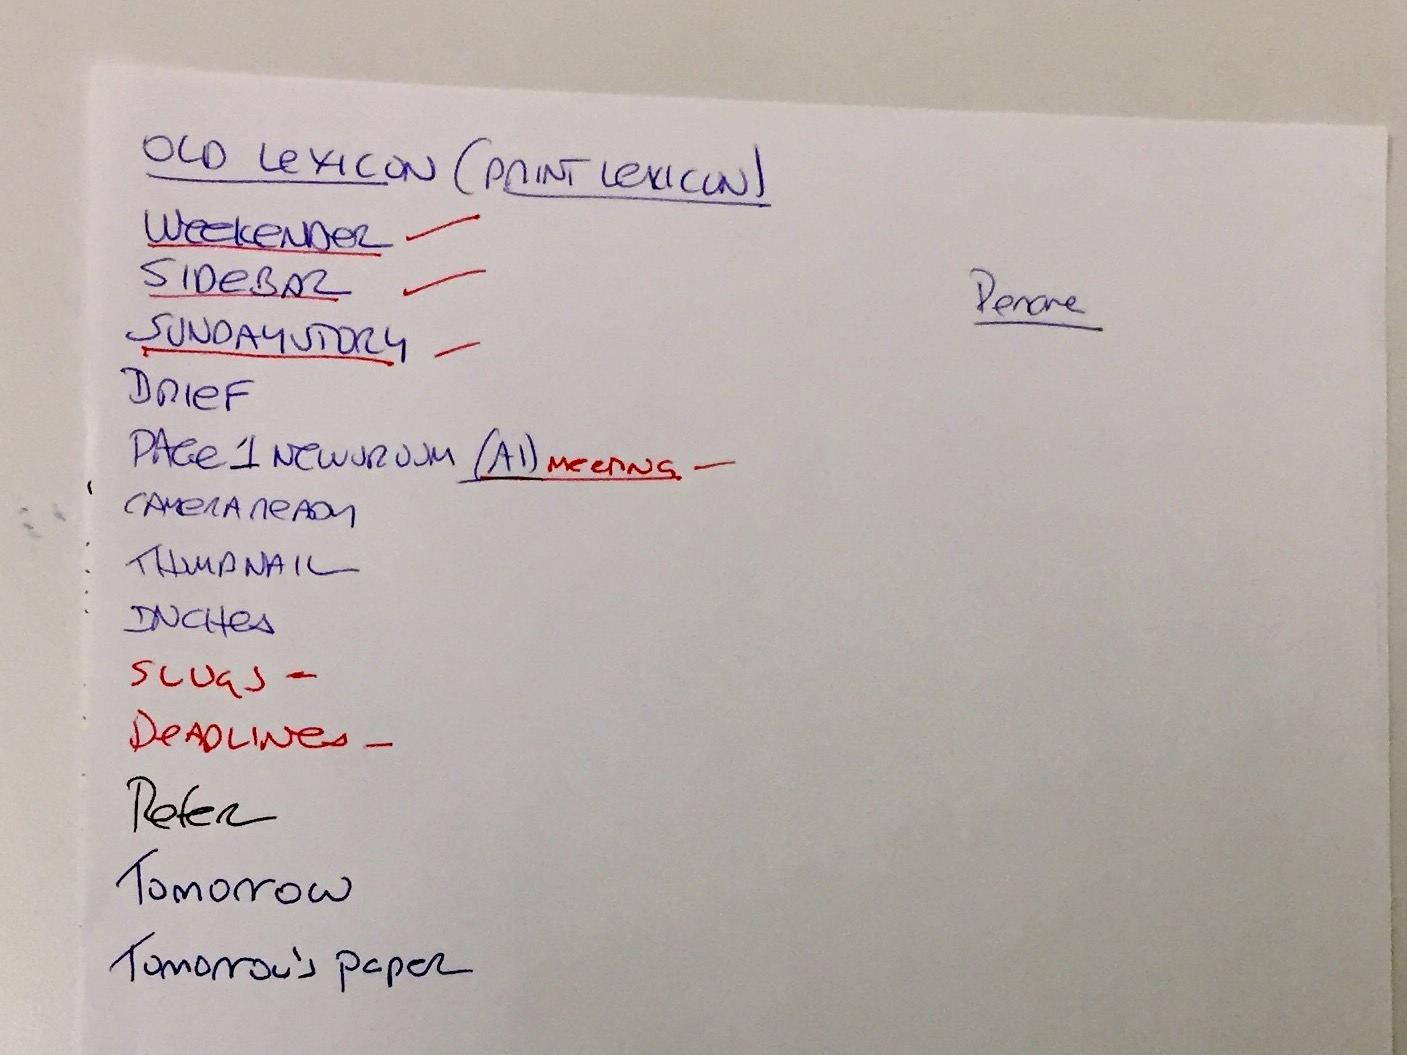 OLD LEXICON (PRINT LEXICON)
WEEKENDER
SIDEBAR
SUNDAY STORY
BRIEF
PAGE 1 NEWSROOM (A1) MEETING -
CAMERA READY
THUMBNAIL
INCHES
SLUGS -
DEADLINES -
Refer
Tomorrow
Tomorrow's paper